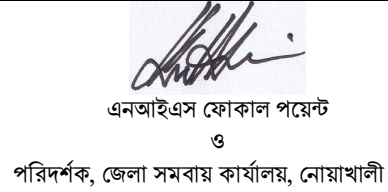 এনআইএস ফোকাল পয়েন্ট
ও
পরিদর্শক, জেলা সমবায় কার্যালয়, নোয়াখালী